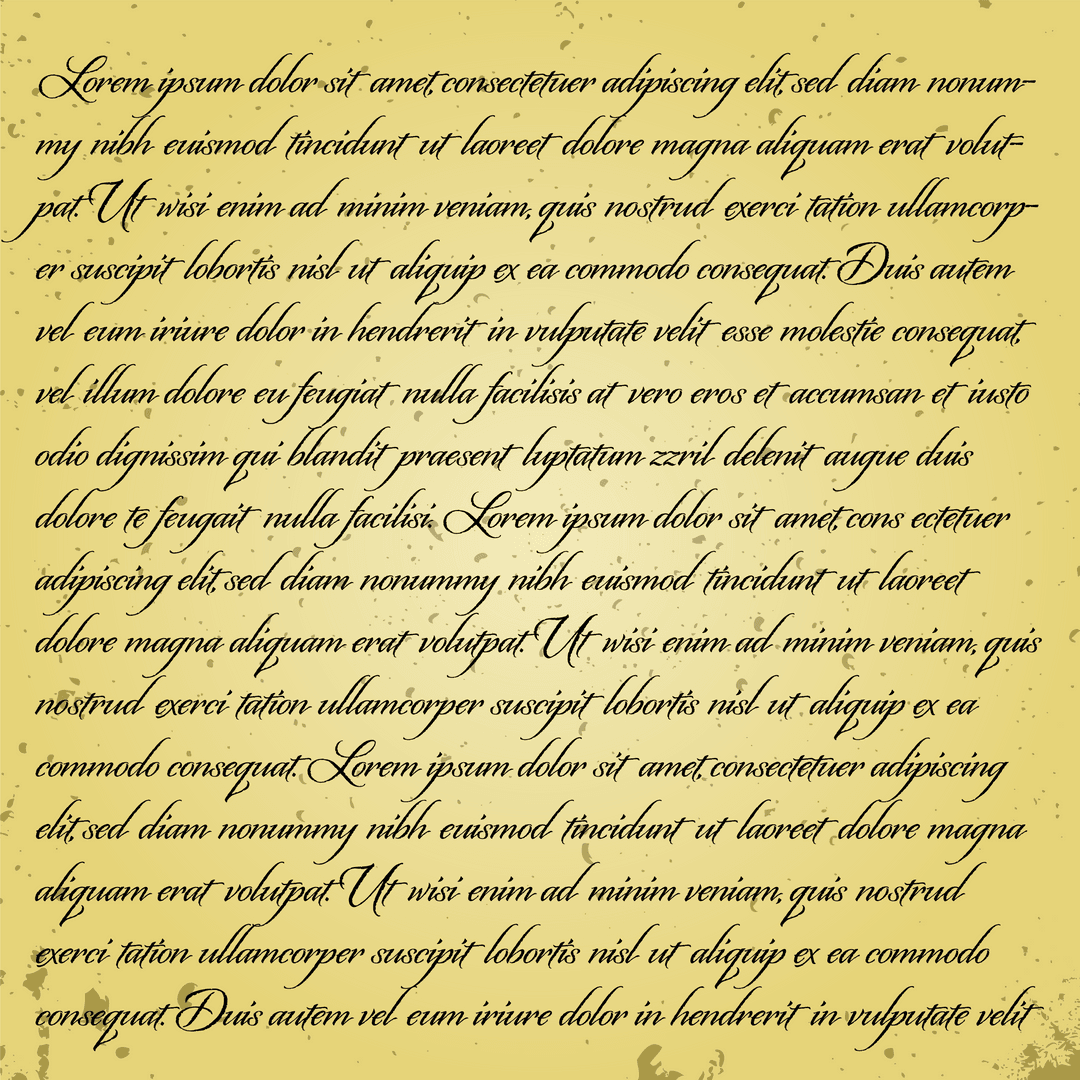 Lorem ipsum dolor sit amet, consectetuer adipiscing elit, sed diam nonum-
my nibh euismod tincidunt ut laoreet dolore magna aliquam erat volut-
pat. Ut wisi enim ad minim veniam, quis nostrud exerci tation ullamcorp-
er suscipit lobortis nisl ut aliquip ex ea commodo consequat. Duis autem
vel eum iriure dolor in hendrerit in vulputate velit esse molestie consequat,
vel illum dolore eu feugiat nulla facilisis at vero eros et accumsan et iusto
odio dignissim qui blandit praesent luptatum zzril delenit augue duis
dolore te feugait nulla facilisi. Lorem ipsum dolor sit amet, cons ectetuer
adipiscing elit, sed diam nonummy nibh euismod tincidunt ut laoreet
dolore magna aliquam erat volutpat. Ut wisi enim ad minim veniam, quis
nostrud exerci tation ullamcorper suscipit lobortis nisl ut aliquip ex ea
commodo consequat. Lorem ipsum dolor sit amet, consectetuer adipiscing
elit, sed diam nonummy nibh euismod tincidunt ut laoreet dolore magna
aliquam erat volutpat. Ut wisi enim ad minim veniam, quis nostrud
exerci tation ullamcorper suscipit lobortis nisl ut aliquip ex ea commodo
consequat. Duis autem vel eum iriure dolor in hendrerit in vulputate velit